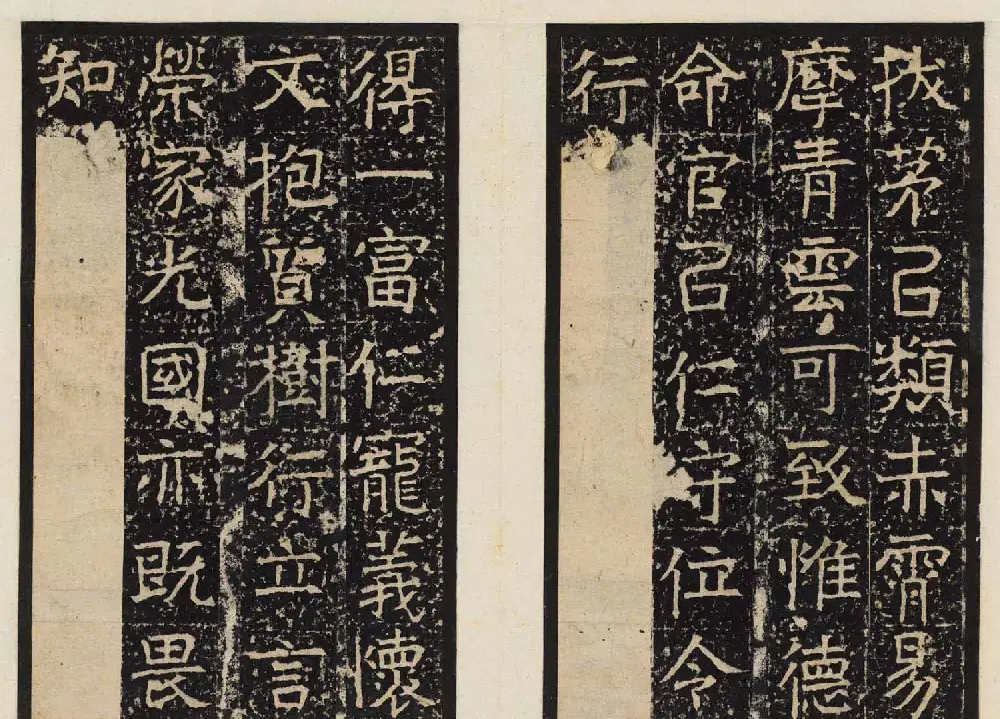 拔茅㠯類赤霄易
摩青雲可致惟德
命官㠯仁守位令
行
得一富仁寵義懷
文抱質樹行立言
榮家光國亦既畏
知